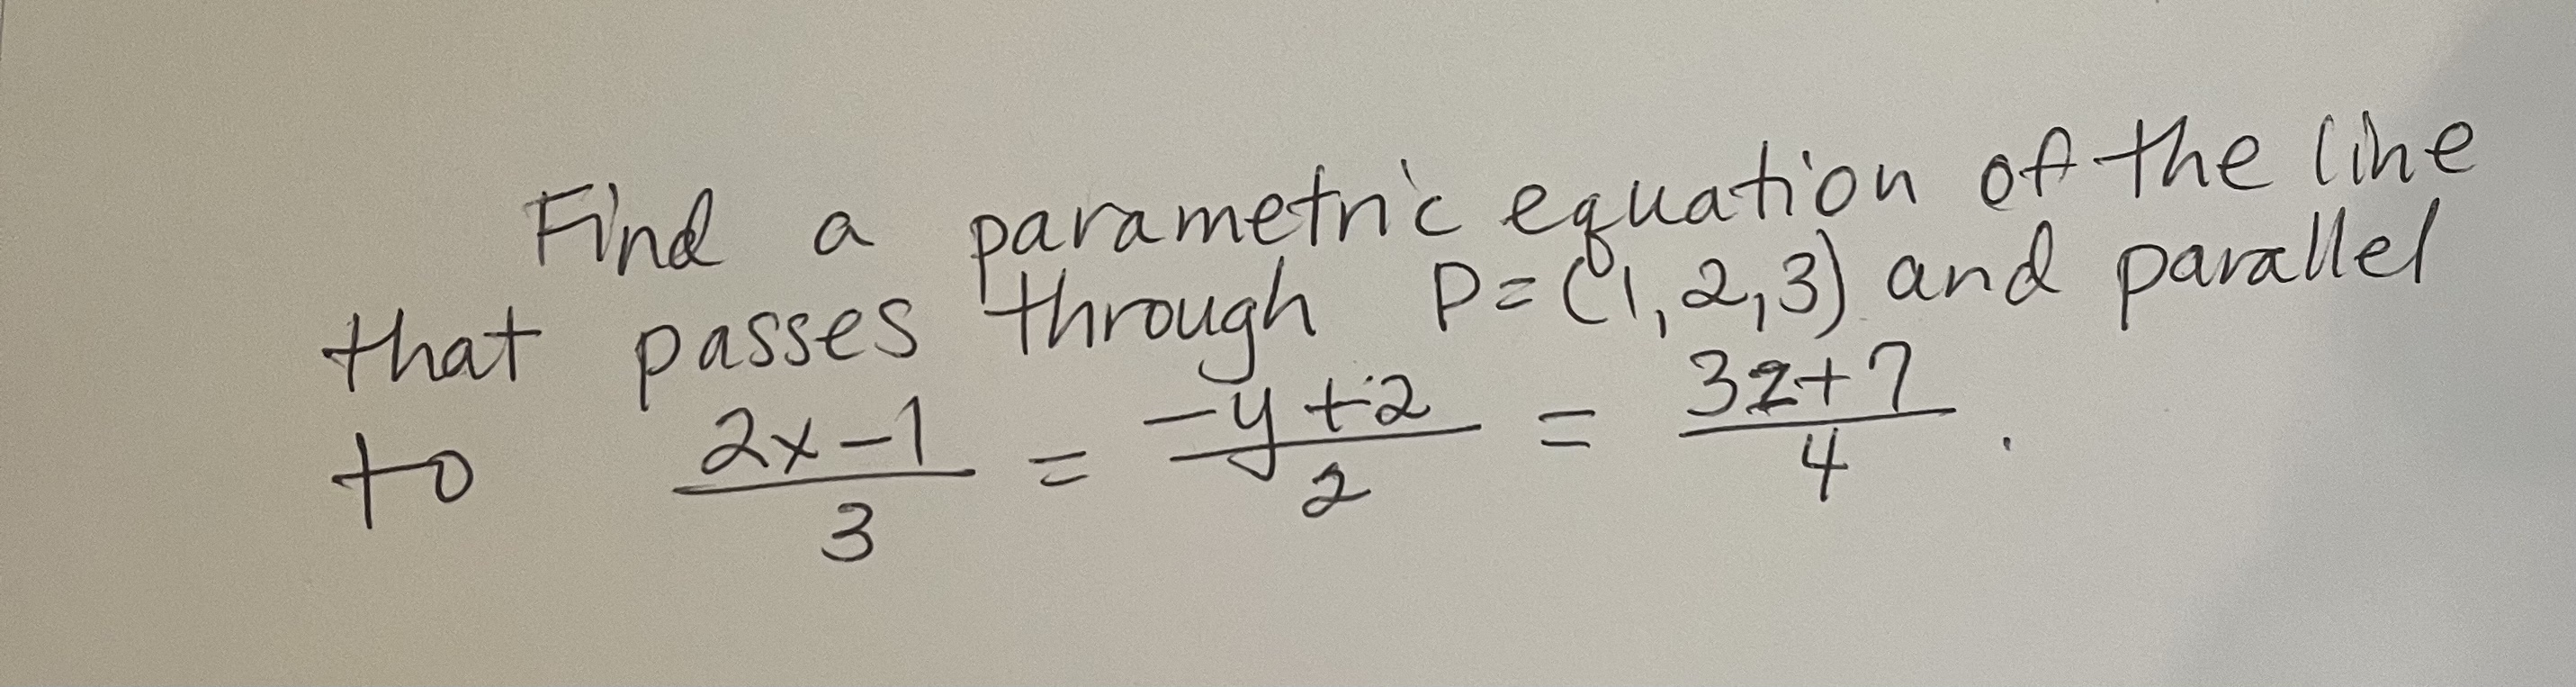 Find a parametric equation of the line
that passes through P=(1,2,3) and parallel
to (2x-1)/3 = (-y+2)/2 = (3z+7)/4.